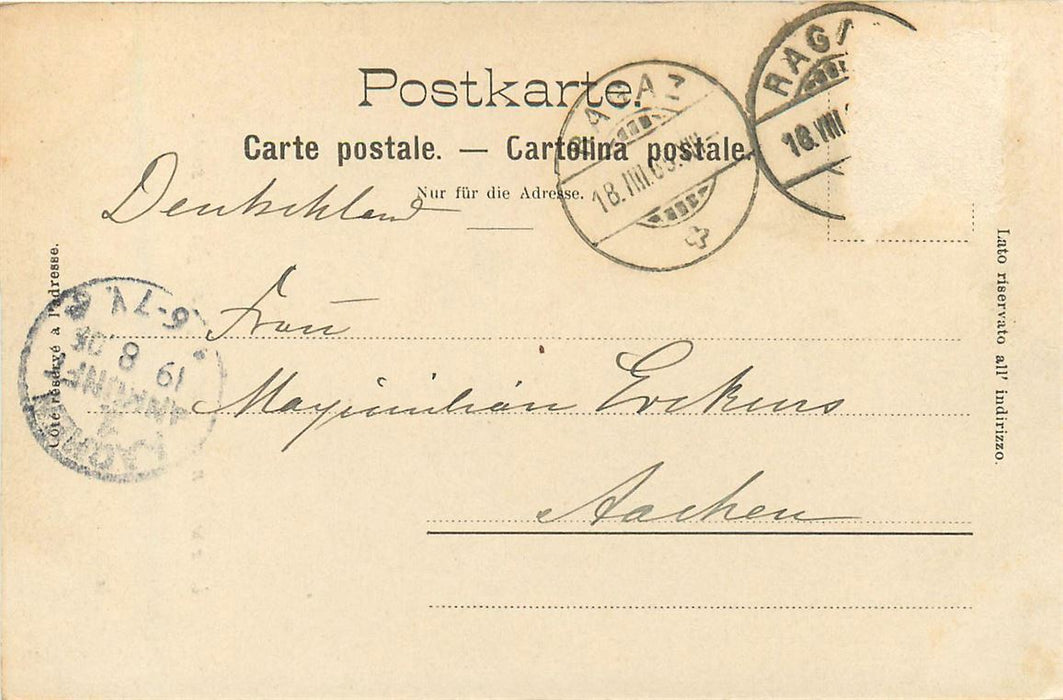 Postkarte.
Carte postale. — Cartolina postale.
Nur für die Adresse.
RAGAZ
18.VIII.03.
RAG
18.VIII
Deutschland
Côté réservé à l'adresse.
Lato riservato all' indirizzo.
6-7
19 8 03
ANKUNFT
AACHEN
Frau
Maximilian
Aachen